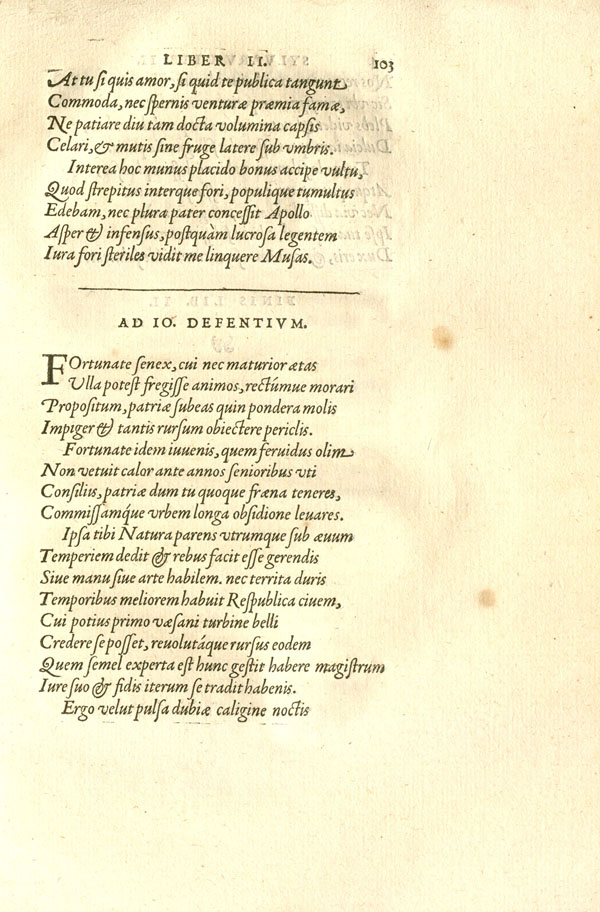 LIBER II. 103
At tu si quis amor, si quid te publica tangunt
Commoda, nec spernis venturæ præmia famæ,
Ne patiare diu tam docta volumina capsis
Celari, & mutis sine fruge latere sub vmbris.
Interea hoc munus placido bonus accipe vultu,
Quod strepitus interque fori, populique tumultus
Edebam, nec plura pater concessit Apollo
Asper & infensus, postquàm lucrosa legentem
Iura fori steriles vidit me linquere Musas.
AD IO. DEFENTIVM.
FOrtunate senex, cui nec maturior ætas
Vlla potest fregisse animos, rectúmue morari
Propositum, patriæ subeas quin pondera molis
Impiger & tantis rursum obiectere periclis.
Fortunate idem iuuenis, quem feruidus olim
Non vetuit calor ante annos senioribus vti
Consilius, patriæ dum tu quoque fræna teneres,
Commissamq́ue vrbem longa obsidione leuares.
Ipsa tibi Natura parens vtrumque sub æuum
Temperiem dedit & rebus facit esse gerendis
Siue manu siue arte habilem. nec territa duris
Temporibus meliorem habuit Respublica ciuem,
Cui potius primo væsani turbine belli
Credere se posset, reuolutáque rursus eodem
Quem semel experta est hunc gestit habere magistrum
Iure suo & fidis iterum se tradit habenis.
Ergo velut pulsa dubiæ caligine noctis